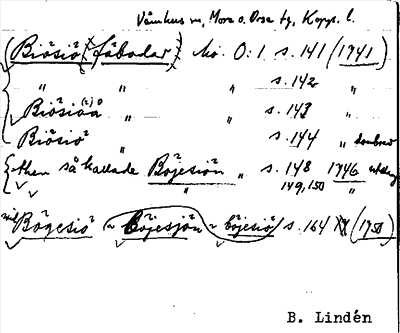 Våmhus sn, Mora o. Orsa tg, Kopp. l.
Biösiö (fäbodar) Mo. O:1 s. 141 (1941)
" " " s. 142 "
Biösiöa " " s. 143 "
Biösiö " s. 144 "
then så kallade Böjesiön " s. 148 1746
" 149, 150 "
Bögesiö ~ Böjesjön ~ böjesiö s. 164 (1750)
B. Lindén